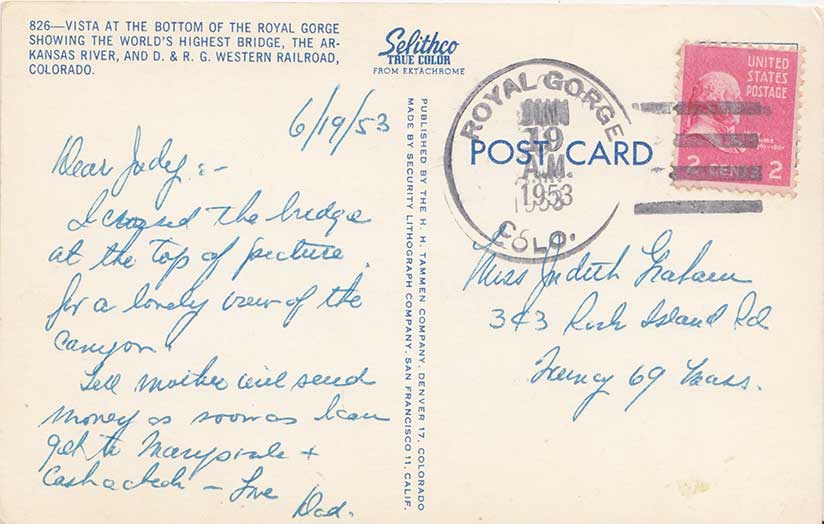 826—VISTA AT THE BOTTOM OF THE ROYAL GORGE
SHOWING THE WORLD'S HIGHEST BRIDGE, THE AR-
KANSAS RIVER, AND D. & R. G. WESTERN RAILROAD,
COLORADO.
Selithco
TRUE COLOR
FROM EKTACHROME
6/19/53
Dear Judy:-
I crossed the bridge
at the top of picture
for a lovely view of the
Canyon.
Tell mother will send
money as soon as I can
get to +
Cash a check - Love
Dad.
PUBLISHED BY THE H. H. TAMMEN COMPANY, DENVER 17, COLORADO
MADE BY SECURITY LITHOGRAPH COMPANY, SAN FRANCISCO 11, CALIF.
ROYAL GORGE
JUN
19
A.M.
1953
COLO.
POST CARD
UNITED
STATES
POSTAGE
2 CENTS 2
Miss Judith Graham
Rock Island Rd
69 Mass.